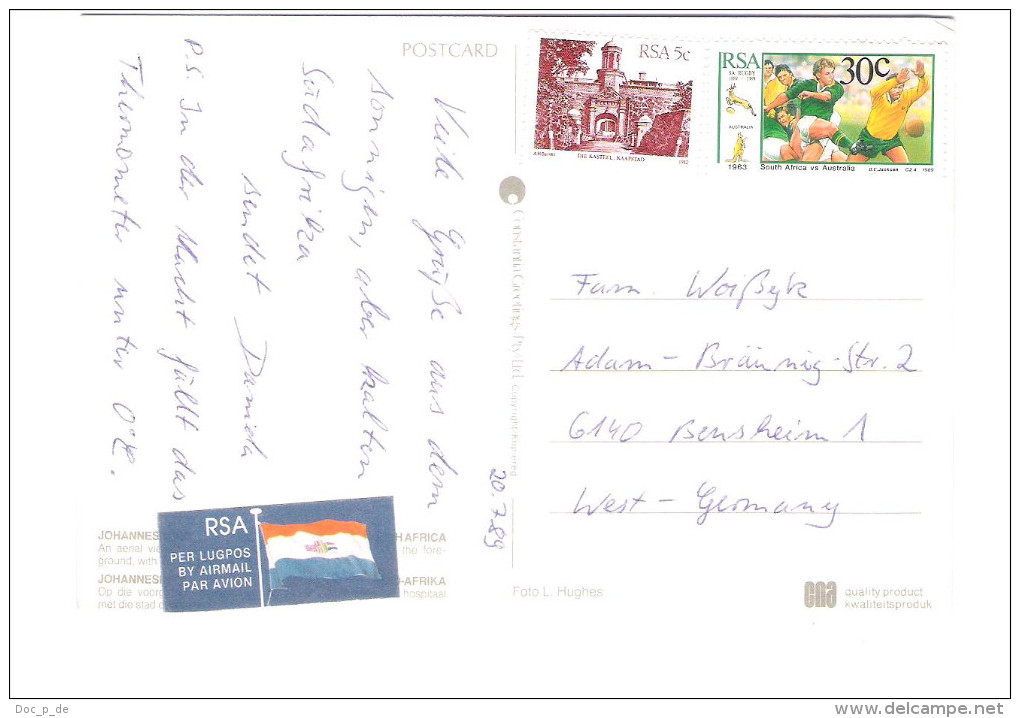 POSTCARD
Viele Grüße aus dem
sonnigen, aber kalten
Südafrika
sendet Daniela
P.S. In der Nacht fällt das
Thermometer unter 0°C.
20.7.89
RSA 5c
THE KASTEEL, KAAPSTAD
RSA
30c
SA RUGBY
1889 1989
AUSTRALIA
1963
South Africa vs Australia
Fam.
Adam-Bräunig-Str. 2
6140 Bensheim 1
West-Germany
Constantia Greetings (Pty) Ltd. Copyright
RSA
PER LUGPOS
BY AIRMAIL
PAR AVION
JOHANNES
H AFRICA
An aerial vie
the fore-
ground, with
JOHANNES
-AFRIKA
Op die voor
hospitaal
met die stad
Foto L. Hughes
cna
quality product
kwaliteitsproduk
Doc_p_de
www.delcampe.net